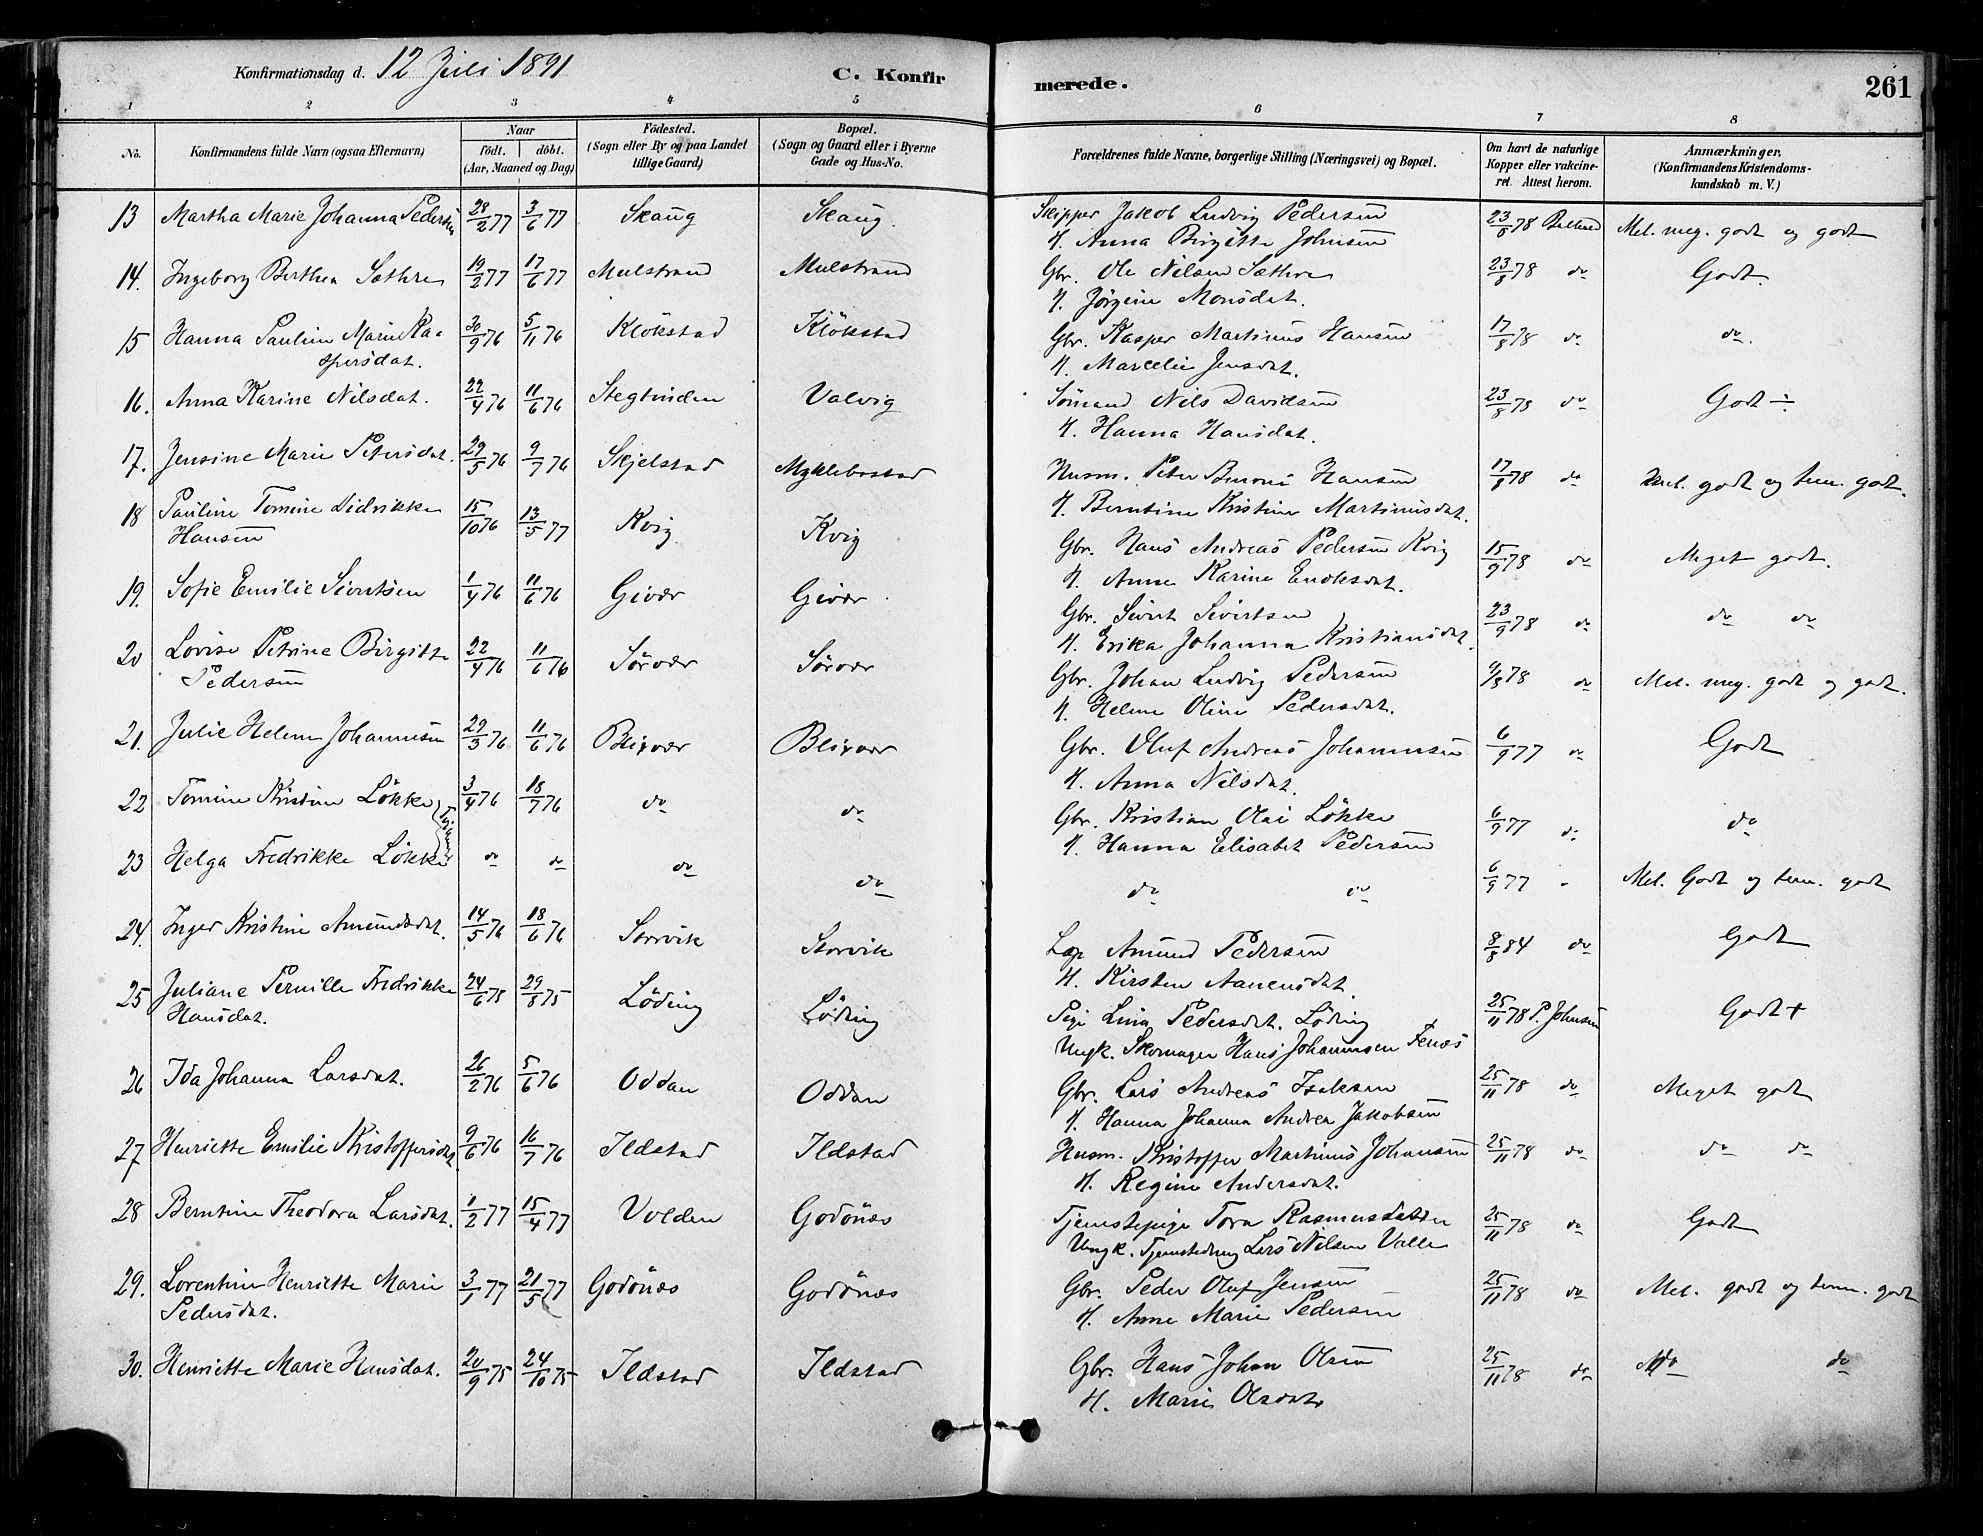 Konfirmationsdag d. 12 Juli 1891
C. Konfir
merede.
261
1 2 3 4 5 6 7 8
No.
Konfirmandens fulde Navn (ogsaa Efternavn)
Naar
födt. döbt.
(Aar, Maaned og Dag)
Födested.
(Sogn eller By og paa Landet
tillige Gaard)
Bopæl.
(Sogn og Gaard eller i Byerne
Gade og Hus-No.
Forældrenes fulde Navne, borgerlige Stilling (Næringsvei) og Bopæl.
Om havt de naturlige
Kopper eller vakcine-
ret. Attest herom.
Anmærkninger.
(Konfirmandens Kristendoms-
kundskab m. V.)
13 Martha Marie Johanna Pedersen 28/2 77 3/6 77 Skaug Skaug. Skipper Jakob Ludvig Pedersen 23/8 78 Mel. meg. godt og godt
H. Anna Birgitte Johnsen
14. Ingeborg Berthea Sæthre 19/2 77 17/6 77 Mulstrand Mulstrand Gbr. Ole Nilsen Sæthre 23/8 78 do Godt.
H. Jörgine Monsdat.
15 Hanna Pauline Marie Ka- 30/9 76 5/11 76 Klökstad Klökstad Gbr. Kasper Martinus Hansen 17/8 78 do do.
spersdat. H. Marcelie Jensdat.
16. Anna Karine Nilsdat. 22/4 76 11/6 76 Stegtinden Valvig Sömand Nils Davidsen 23/8 78 do Godt ÷
H. Hanna Hansdat.
17. Jensine Marie Petersdat. 29/5 76 9/7 76 Skjelstad Myklebostad Husm. Peter Benoni Hansen 17/8 78 do Mel. godt og tem. godt.
H. Berntine Kristine Martinusdat.
18 Pauline Tomine Didrikke 15/10 76 13/5 77 Kvig Kvig Gbr. Hans Andreas Pedersen Kvig 15/9 78 do Meget godt.
Hansen H. Anne Karine Enoksdat.
19. Sofie Emilie Sivertsen 1/4 76 11/6 76 Givær Givær. Gbr. Sivert Sivertsen 23/9 78 do do do
H. Erika Johanna Kristiansdat.
20 Lovise Petrine Birgitte 22/4 76 11/6 76 Sörvær Sörvær Gbr. Johan Ludvig Pedersen 9/8 78 do Mel. meg. godt og godt.
Pedersen H. Helene Oline Pedersdat.
21. Julie Helene Johannesen 29/3 76 11/6 76 Blixvær Blixvær Gbr. Oluf Andreas Johannesen 6/9 77 do Godt
H. Anna Nilsdat.
22 Tomine Kristine Lökke 3/4 76 18/7 76 do do Gbr. Kristian Olai Lökke 6/9 77 do do
H. Hanna Elisabet Pedersen
23 Helga Fredrikke Lökke do do do do do do 6/9 77 Mel. Godt og tem. godt
24. Inger Kristine Amundsdat. 14/5 76 18/6 76 Storvik Storvik Lap Amund Pedersen 8/8 84 do Godt
H. Kirsten Aanensdat.
25 Juliane Pernille Fredrikke 24/6 75 29/8 75 Löding Löding Pige Lina Pedersdat. Löding 25/11 78 P. Johnsen Godt +
Hansdat. Ungk. Skomager Hans Johannesen Fenes
26 Ida Johanna Larsdat. 26/2 76 5/6 76 Oddan Oddan Gbr. Lars Andreas Isaksen 25/11 78 do Meget godt
H. Hanna Johanna Andrea Jakobsen
27 Henriette Emilie Kristoffersdat. 9/6 76 16/7 76 Ildstad Ildstad Husm. Kristoffer Martinus Johansen 25/11 78 do do do
H. Regine Andersdat.
28 Berntine Theodora Larsdat. 1/2 77 15/4 77 Volden Godönæs Tjenstepige Tora Rasmusdatter 25/11 78 do Godt
Ungk. Tjenstedreng Lars Nilsen Valle
29. Lorentine Henriette Marie 3/1 77 21/5 77 Godönæs Godönæs Gbr. Peder Oluf Jensen 25/11 78 do Mel. godt og tem. godt
Pedersdat. H. Anne Marie Pedersen
30. Henriette Marie Hansdat. 20/9 75 24/10 75 Ildstad Ildstad Gbr. Hans Johan Olsen 25/11 78 do do do
H. Marie Olsdat.